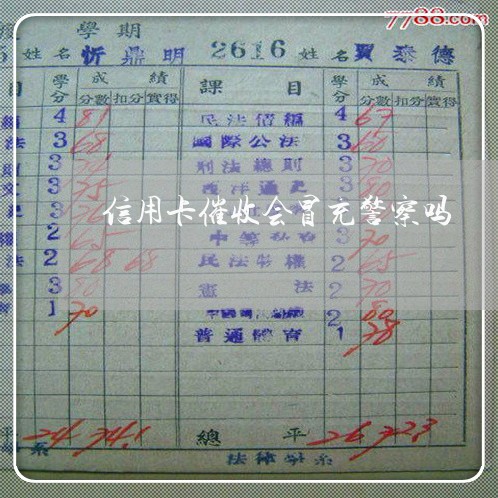 7788.com
學期
姓名 忻鼎明 2616 姓名 賈泰德
目 學分 成績 課目 學分 成績
分數 扣分 實得 分數 扣分 實得
4 81 民法債編 4 67
法 3 68 國際公法 3 60
3 刑法總則 3 70
3 75 西洋通史 3 80
信用卡催收会冒充警察吗
2 65 3 70
法 2 68 68 民法物權 2 65
3 80 憲法 2 70
1 70 2 80
普通體育 1 78
24 74.1 總平 26 72.3
系 法律學系